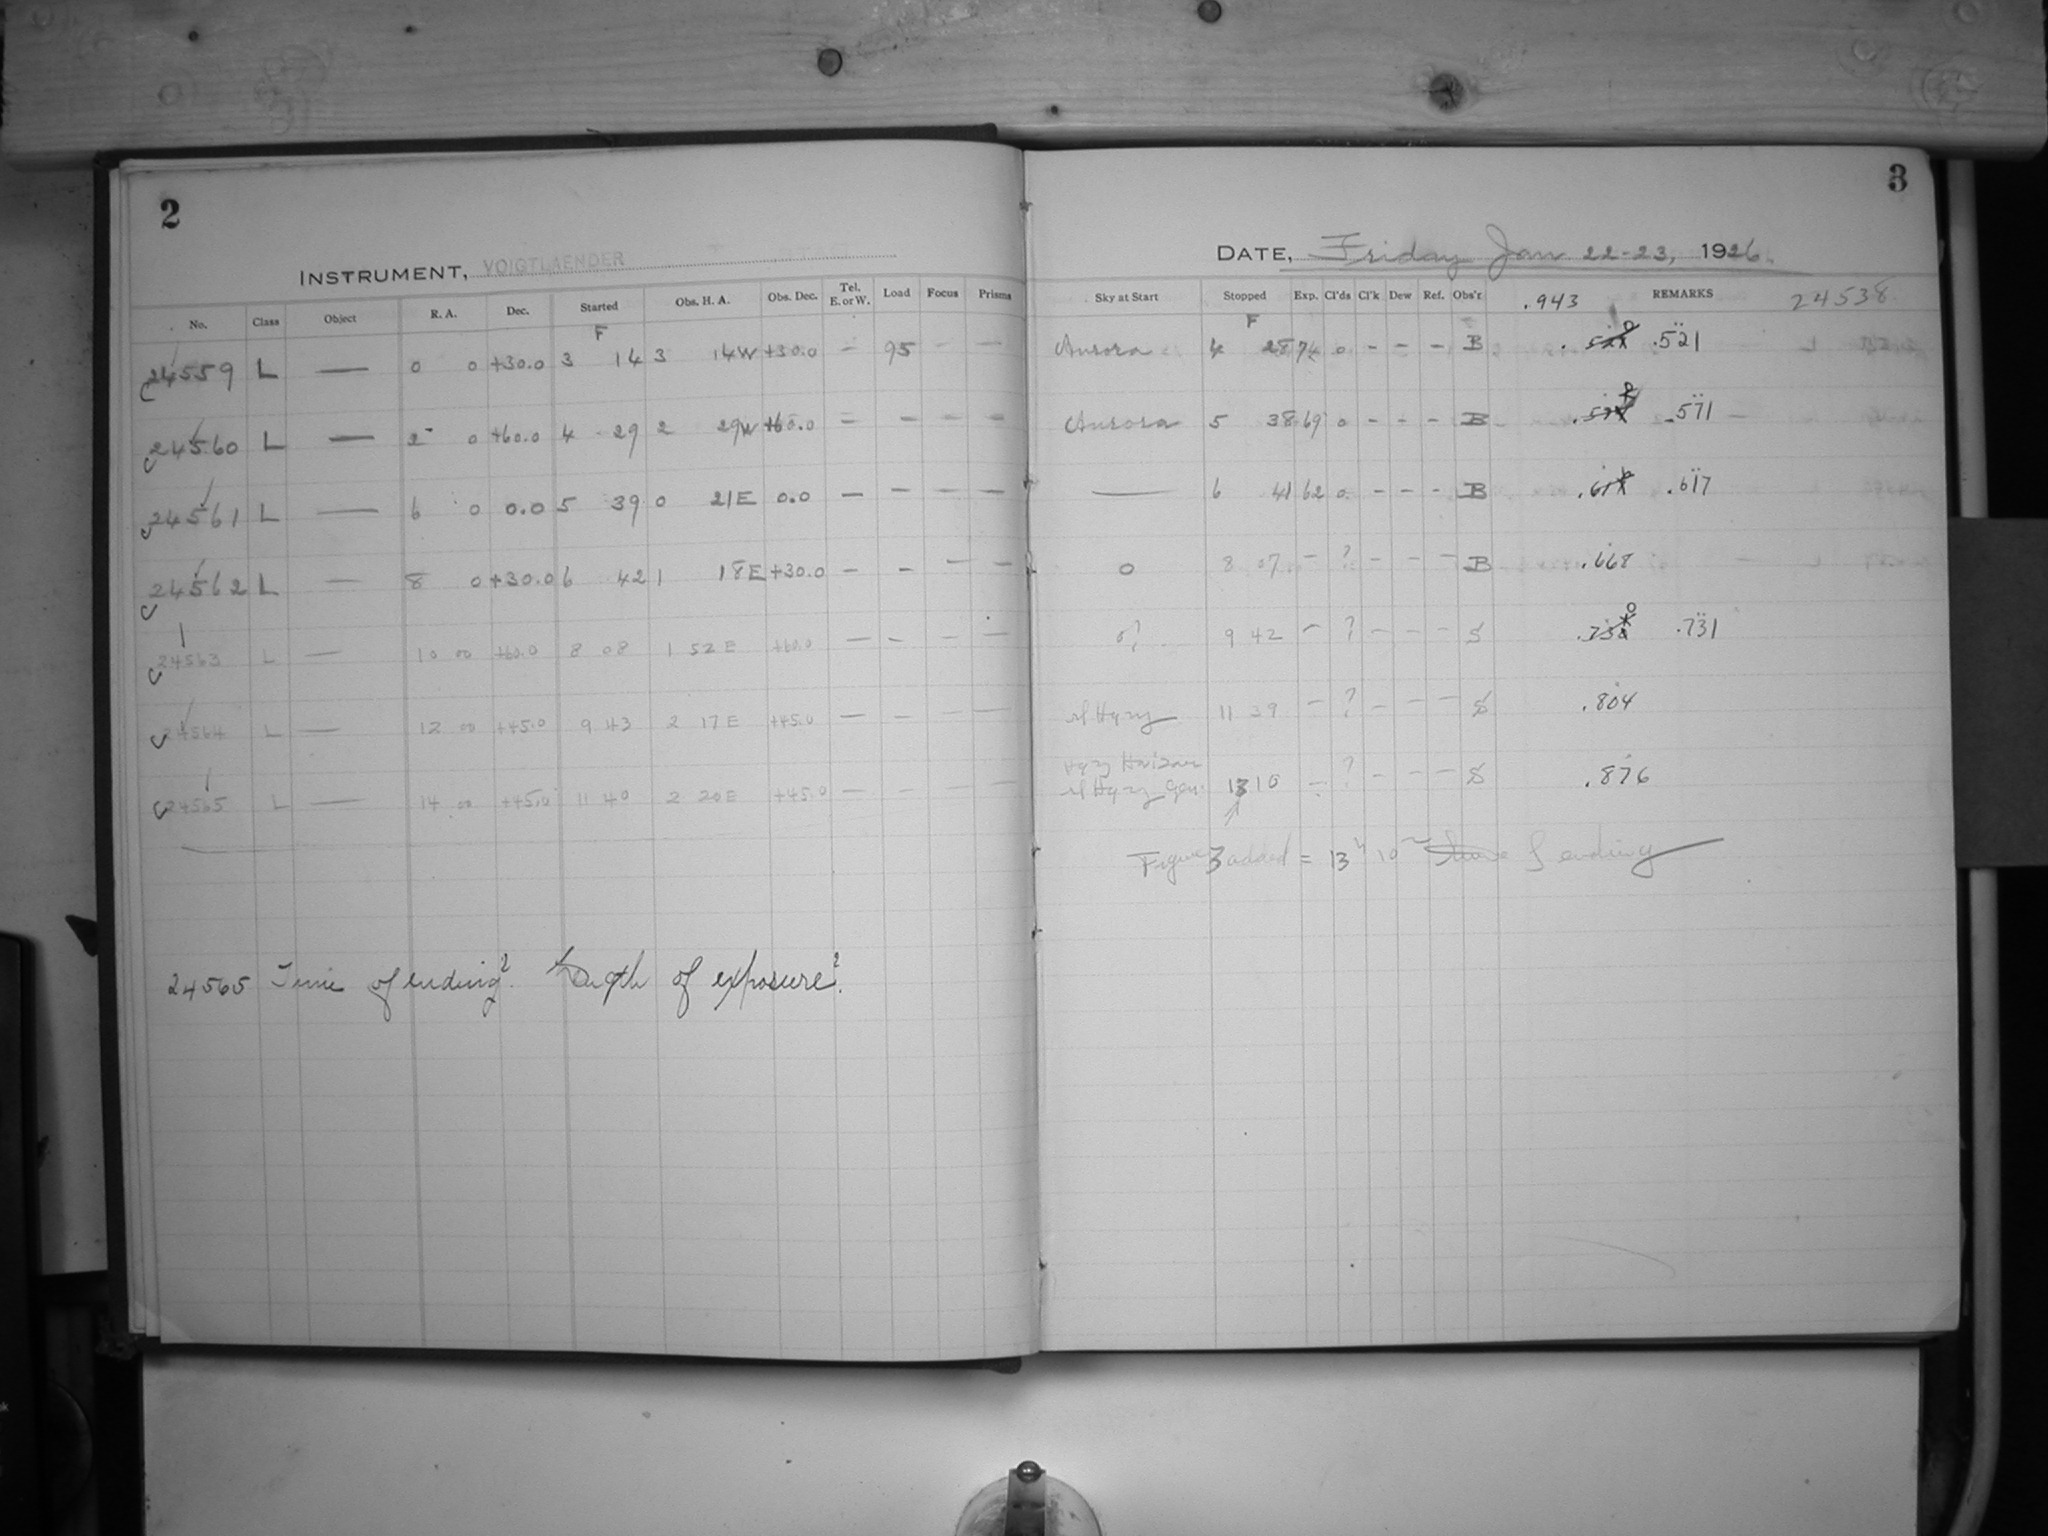 2
INSTRUMENT, VOIGTLAENDER
No. Class Object R. A. Dec. Started Obs. H. A. Obs. Dec. Tel. E. or W. Load Focus Prisms
F
24559 L — 0 0 +30.0 3 14 3 14W +30.0 — 95 — —
24560 L — 2 0 +60.0 4 29 2 29W +60.0 — — — —
24561 L — 6 0 0.0 5 39 0 21E 0.0 — — — —
24562 L — 8 0 +30.0 6 42 1 18E +30.0 — — — —
24563 L — 10 00 +60.0 8 08 1 52E +60.0 — — — —
24564 L — 12 00 +45.0 9 43 2 17E +45.0 — — — —
24565 L — 14 00 +45.0 11 40 2 20E +45.0 — — — —
24565 Time of ending? Length of exposure?
3
DATE, Friday Jan 22-23, 1926.
Sky at Start Stopped Exp. Cl'ds Cl'k Dew Ref. Obs'r. .943 REMARKS 24538
F
Aurora 4 28 74 0 - - - B .521
Aurora 5 38 69 0 - - - B .571
— 6 41 62 0 - - - B .617
0 8 07 - ? - - - B .668
0? 9 42 - ? - - - S .731
sl Hazy 11 39 - ? - - - S .804
Hazy Horizon
sl Hazy Gen. 13 10 - ? - - - S .876
Figure 3 added = 13h 10m time of ending